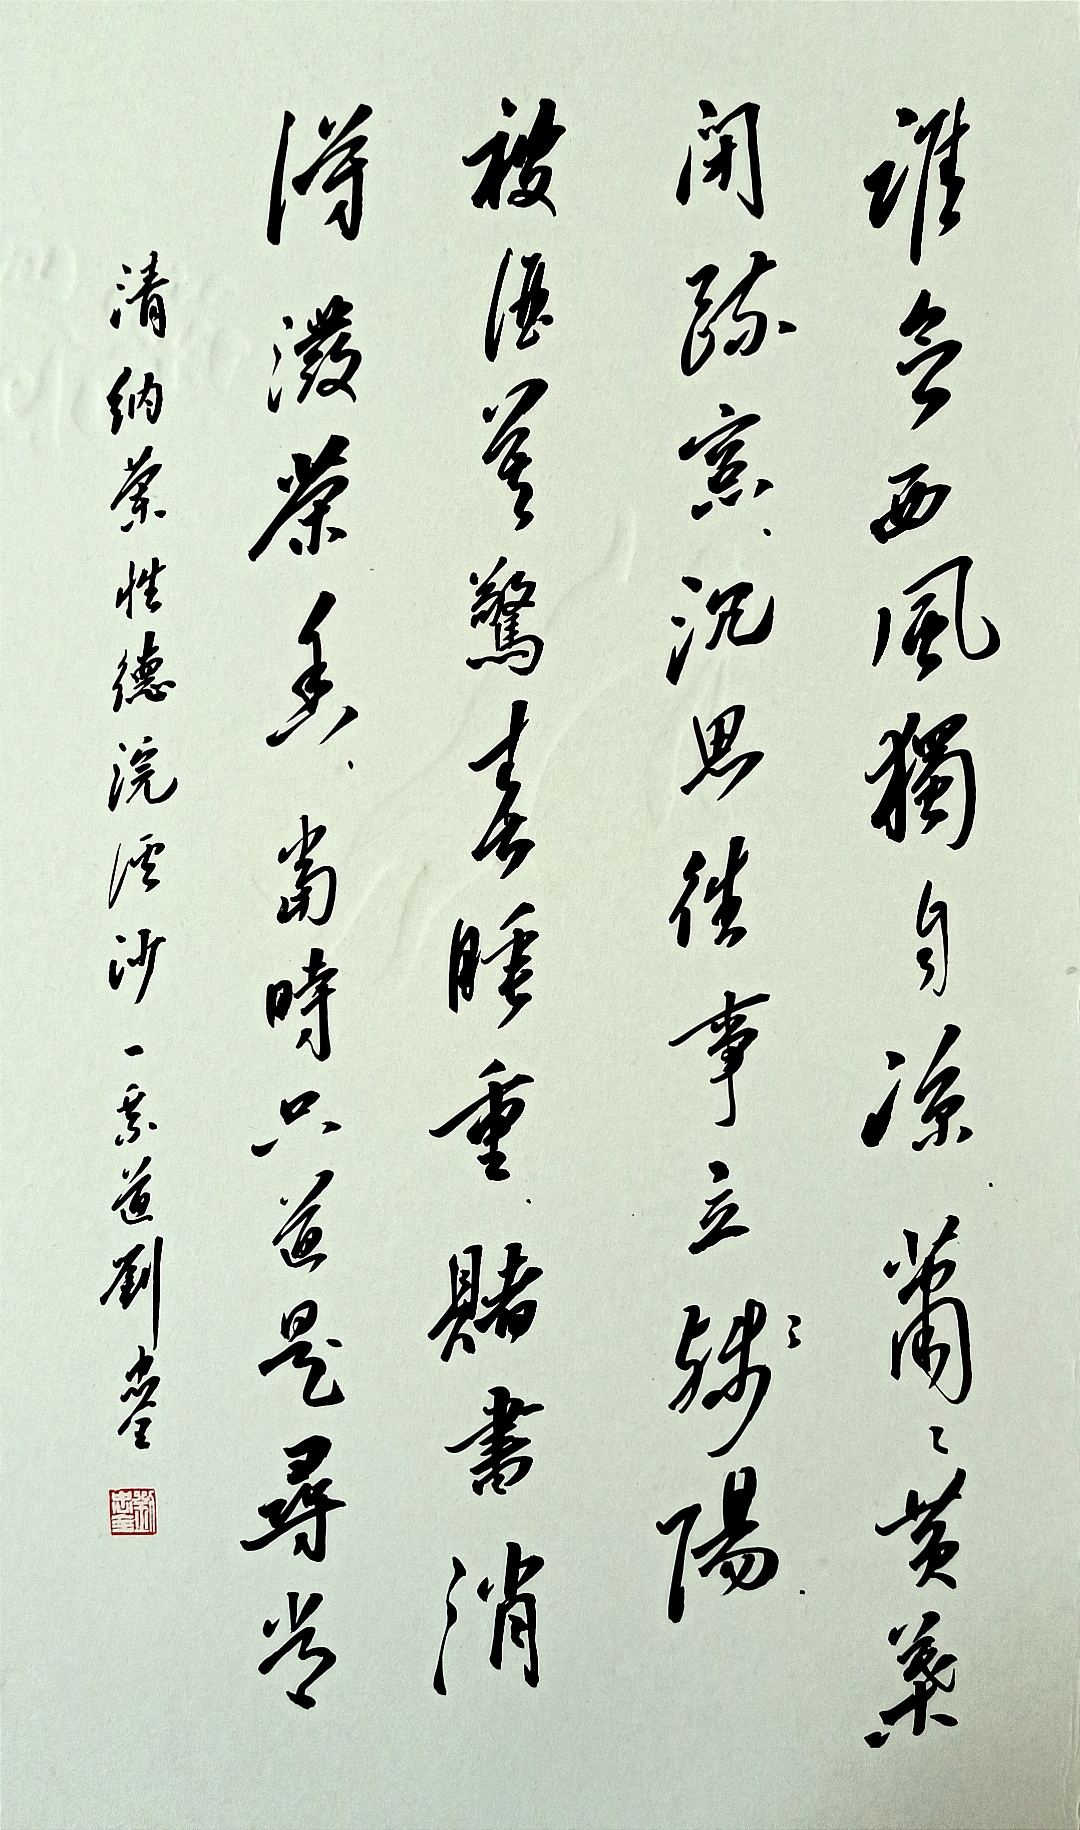 誰念西風獨自凉蕭〻黄葉
閉疏窓沉思往事立殘陽
被酒莫驚春睡重賭書消
得潑茶香當時只道是尋常
清納蘭性德浣溪沙一素道劉忠全